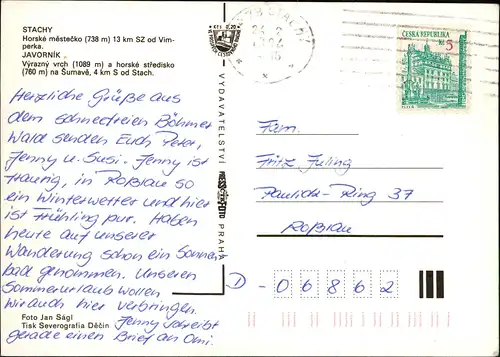 STACHY
Horské městečko (738 m) 13 km SZ od Vim-
perka.
JAVORNÍK
Výrazný vrch (1089 m) a horské středisko
(760 m) na Šumavě, 4 km S od Stach.
Herzliche Grüße aus
dem schneefreien Böhmer
Wald senden Euch Peter,
Jenny u. Susi. Jenny ist
traurig, in Roßlau so
ein Winterwetter und hier
ist Frühling pur. Haben
heute auf unserer
Wanderung schon ein Sonnen
bad genommen. Unseren
Sommerurlaub wollen
wir auch hier verbringen.
Jenny schreibt
gerade einen Brief an Omi.
Foto Jan Ságl
Tisk Severografia Děčín
VYDAVATELSTVÍ
PRAHA
STACHY
ČESKÁ REPUBLIKA
Kč 5
PLZEŇ
Fam.
Fritz Juling
Paulick-Ring 37
Roßlau
D-06862